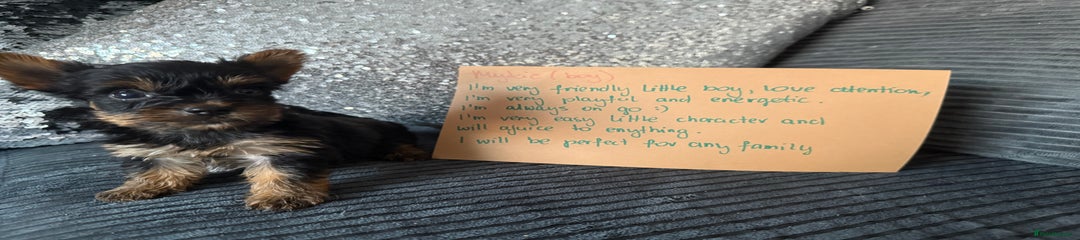 (boy)
I'm very friendly little boy, love attention,
I'm very playful and energetic.
I'm always on go :)
I'm very easy little character and
will ajuice to enything.
I will be perfect for any family